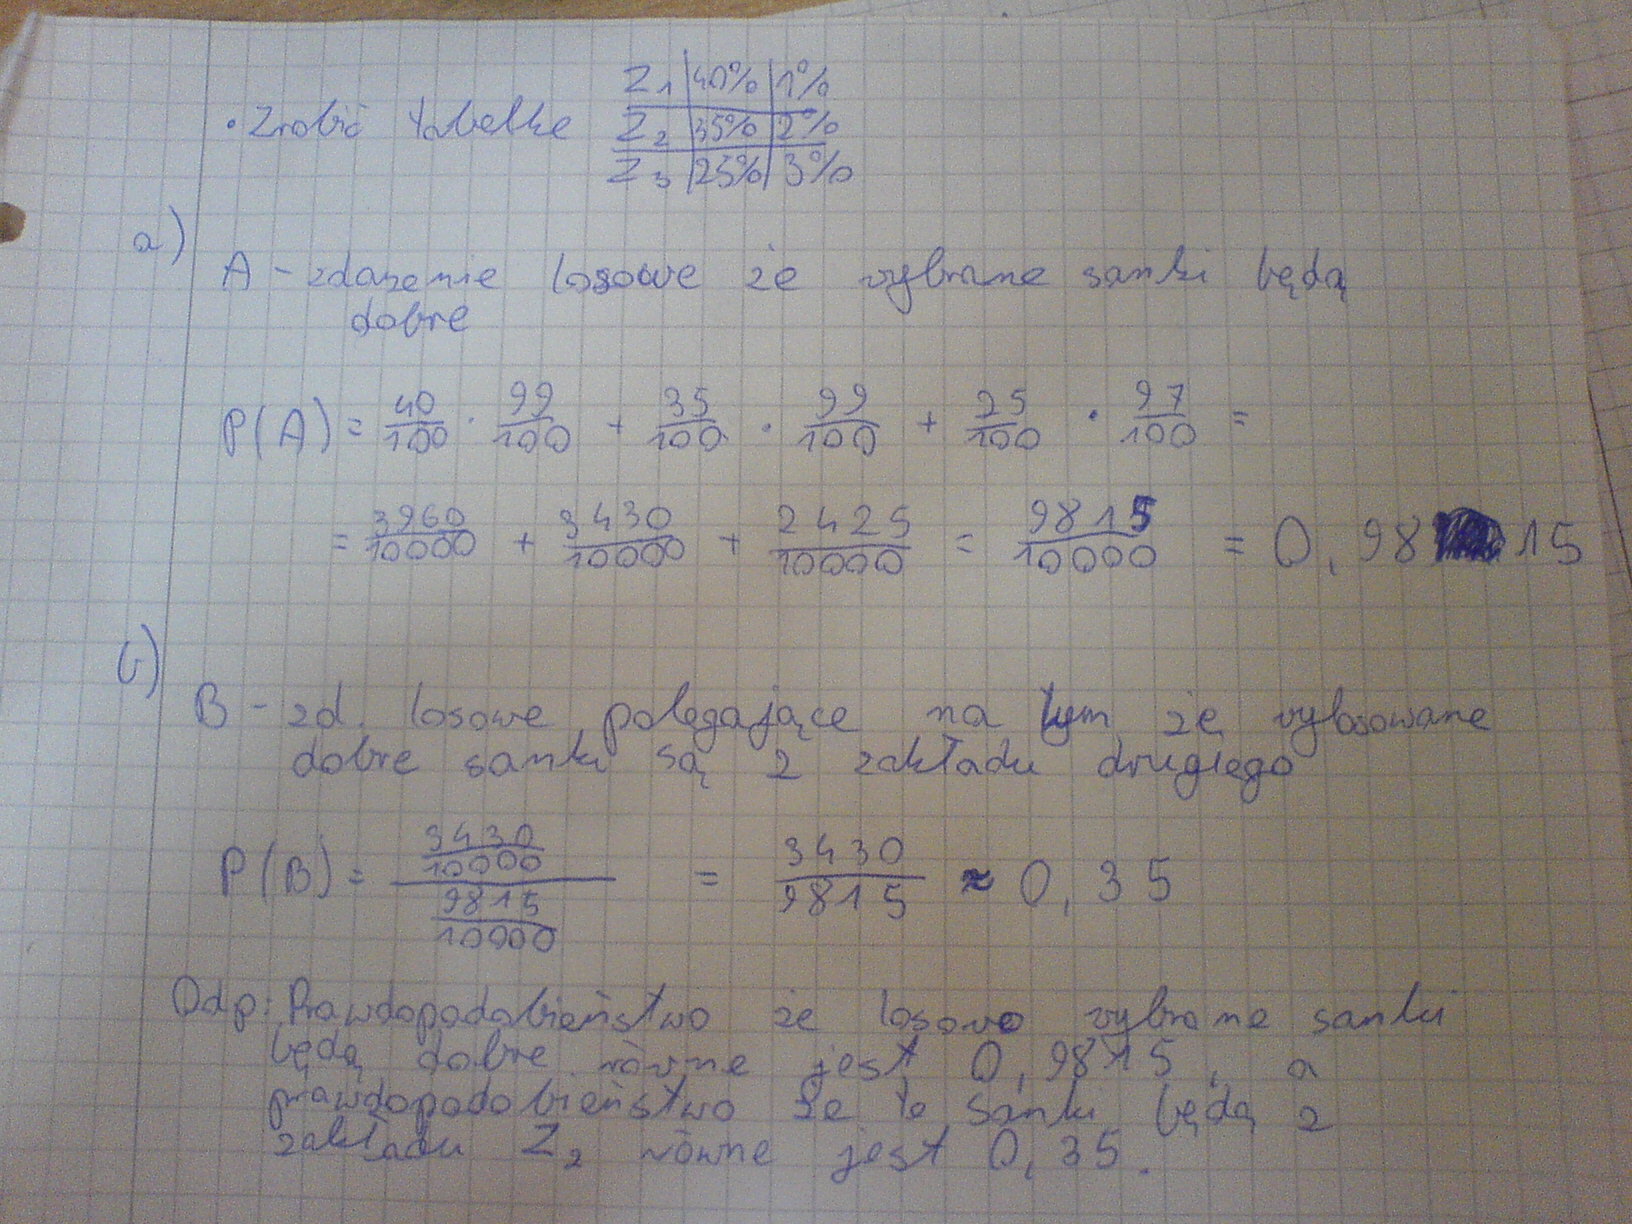 • Zrobić tabelke
Z1 | 40% | 1%
Z2 | 35% | 2%
Z3 | 25% | 3%
a)
A - zdazenie losowe że wybrane sanki będą
dobre
P(A) = 40/100 · 99/100 + 35/100 · 99/100 + 25/100 · 97/100 =
= 3960/10000 + 3430/10000 + 2425/10000 = 9815/10000 = 0,98 15
b)
B - zd. losowe polegające na tym że wylosowane
dobre sanki są z zakładu drugiego
P(B) = (3430/10000)/(9815/10000) = 3430/9815 ≈ 0,35
Odp: Prawdopodobieństwo że losowo wybrane sanki
będą dobre równe jest 0,9815, a
prawdopodobieństwo że te sanki będą z
zakładu Z2 równe jest 0,35.